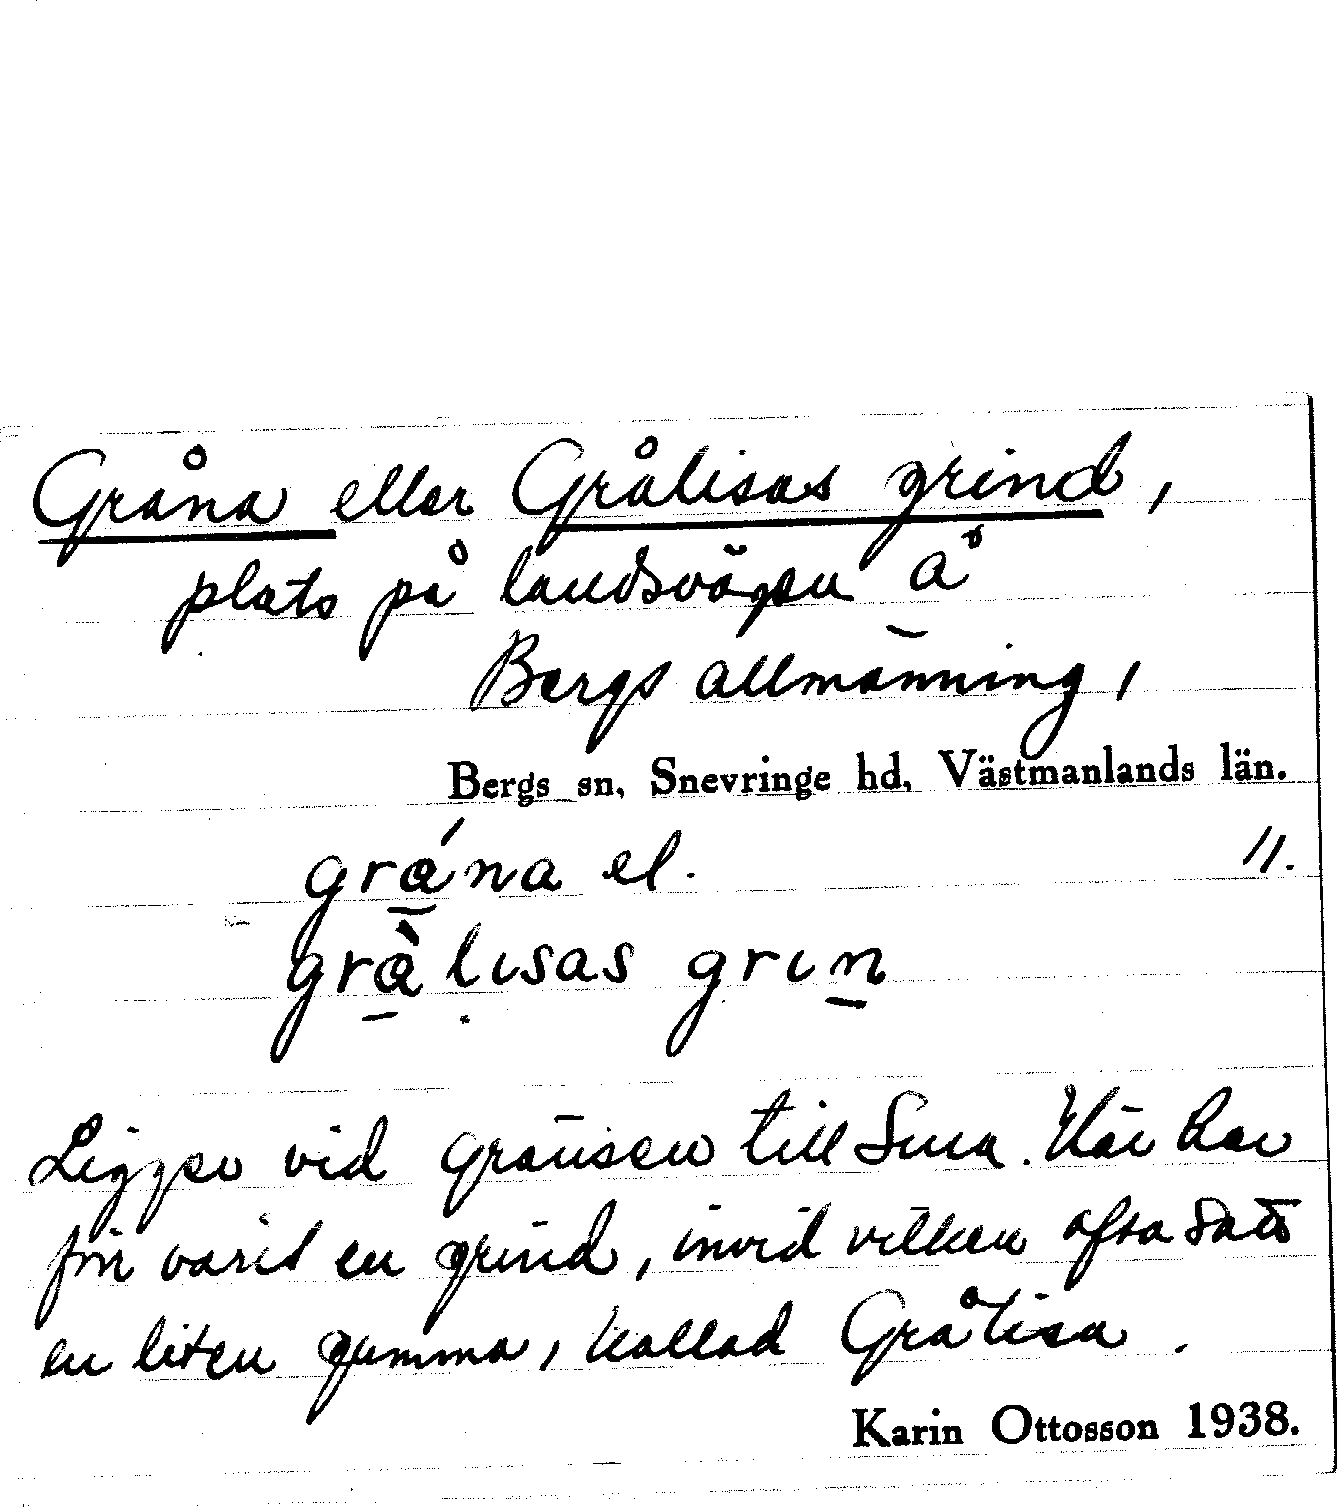 Gråna eller Grålisas grind,
plats på landsvägen å
Bergs allmänning,
Bergs sn, Snevringe hd, Västmanlands län.
grána el.
11.
gràlisas grin
Ligger vid gränsen till Sura. Här har
förr varit en grind, invid vilken ofta satt
en liten gumma, kallad Grålisa.
Karin Ottosson 1938.